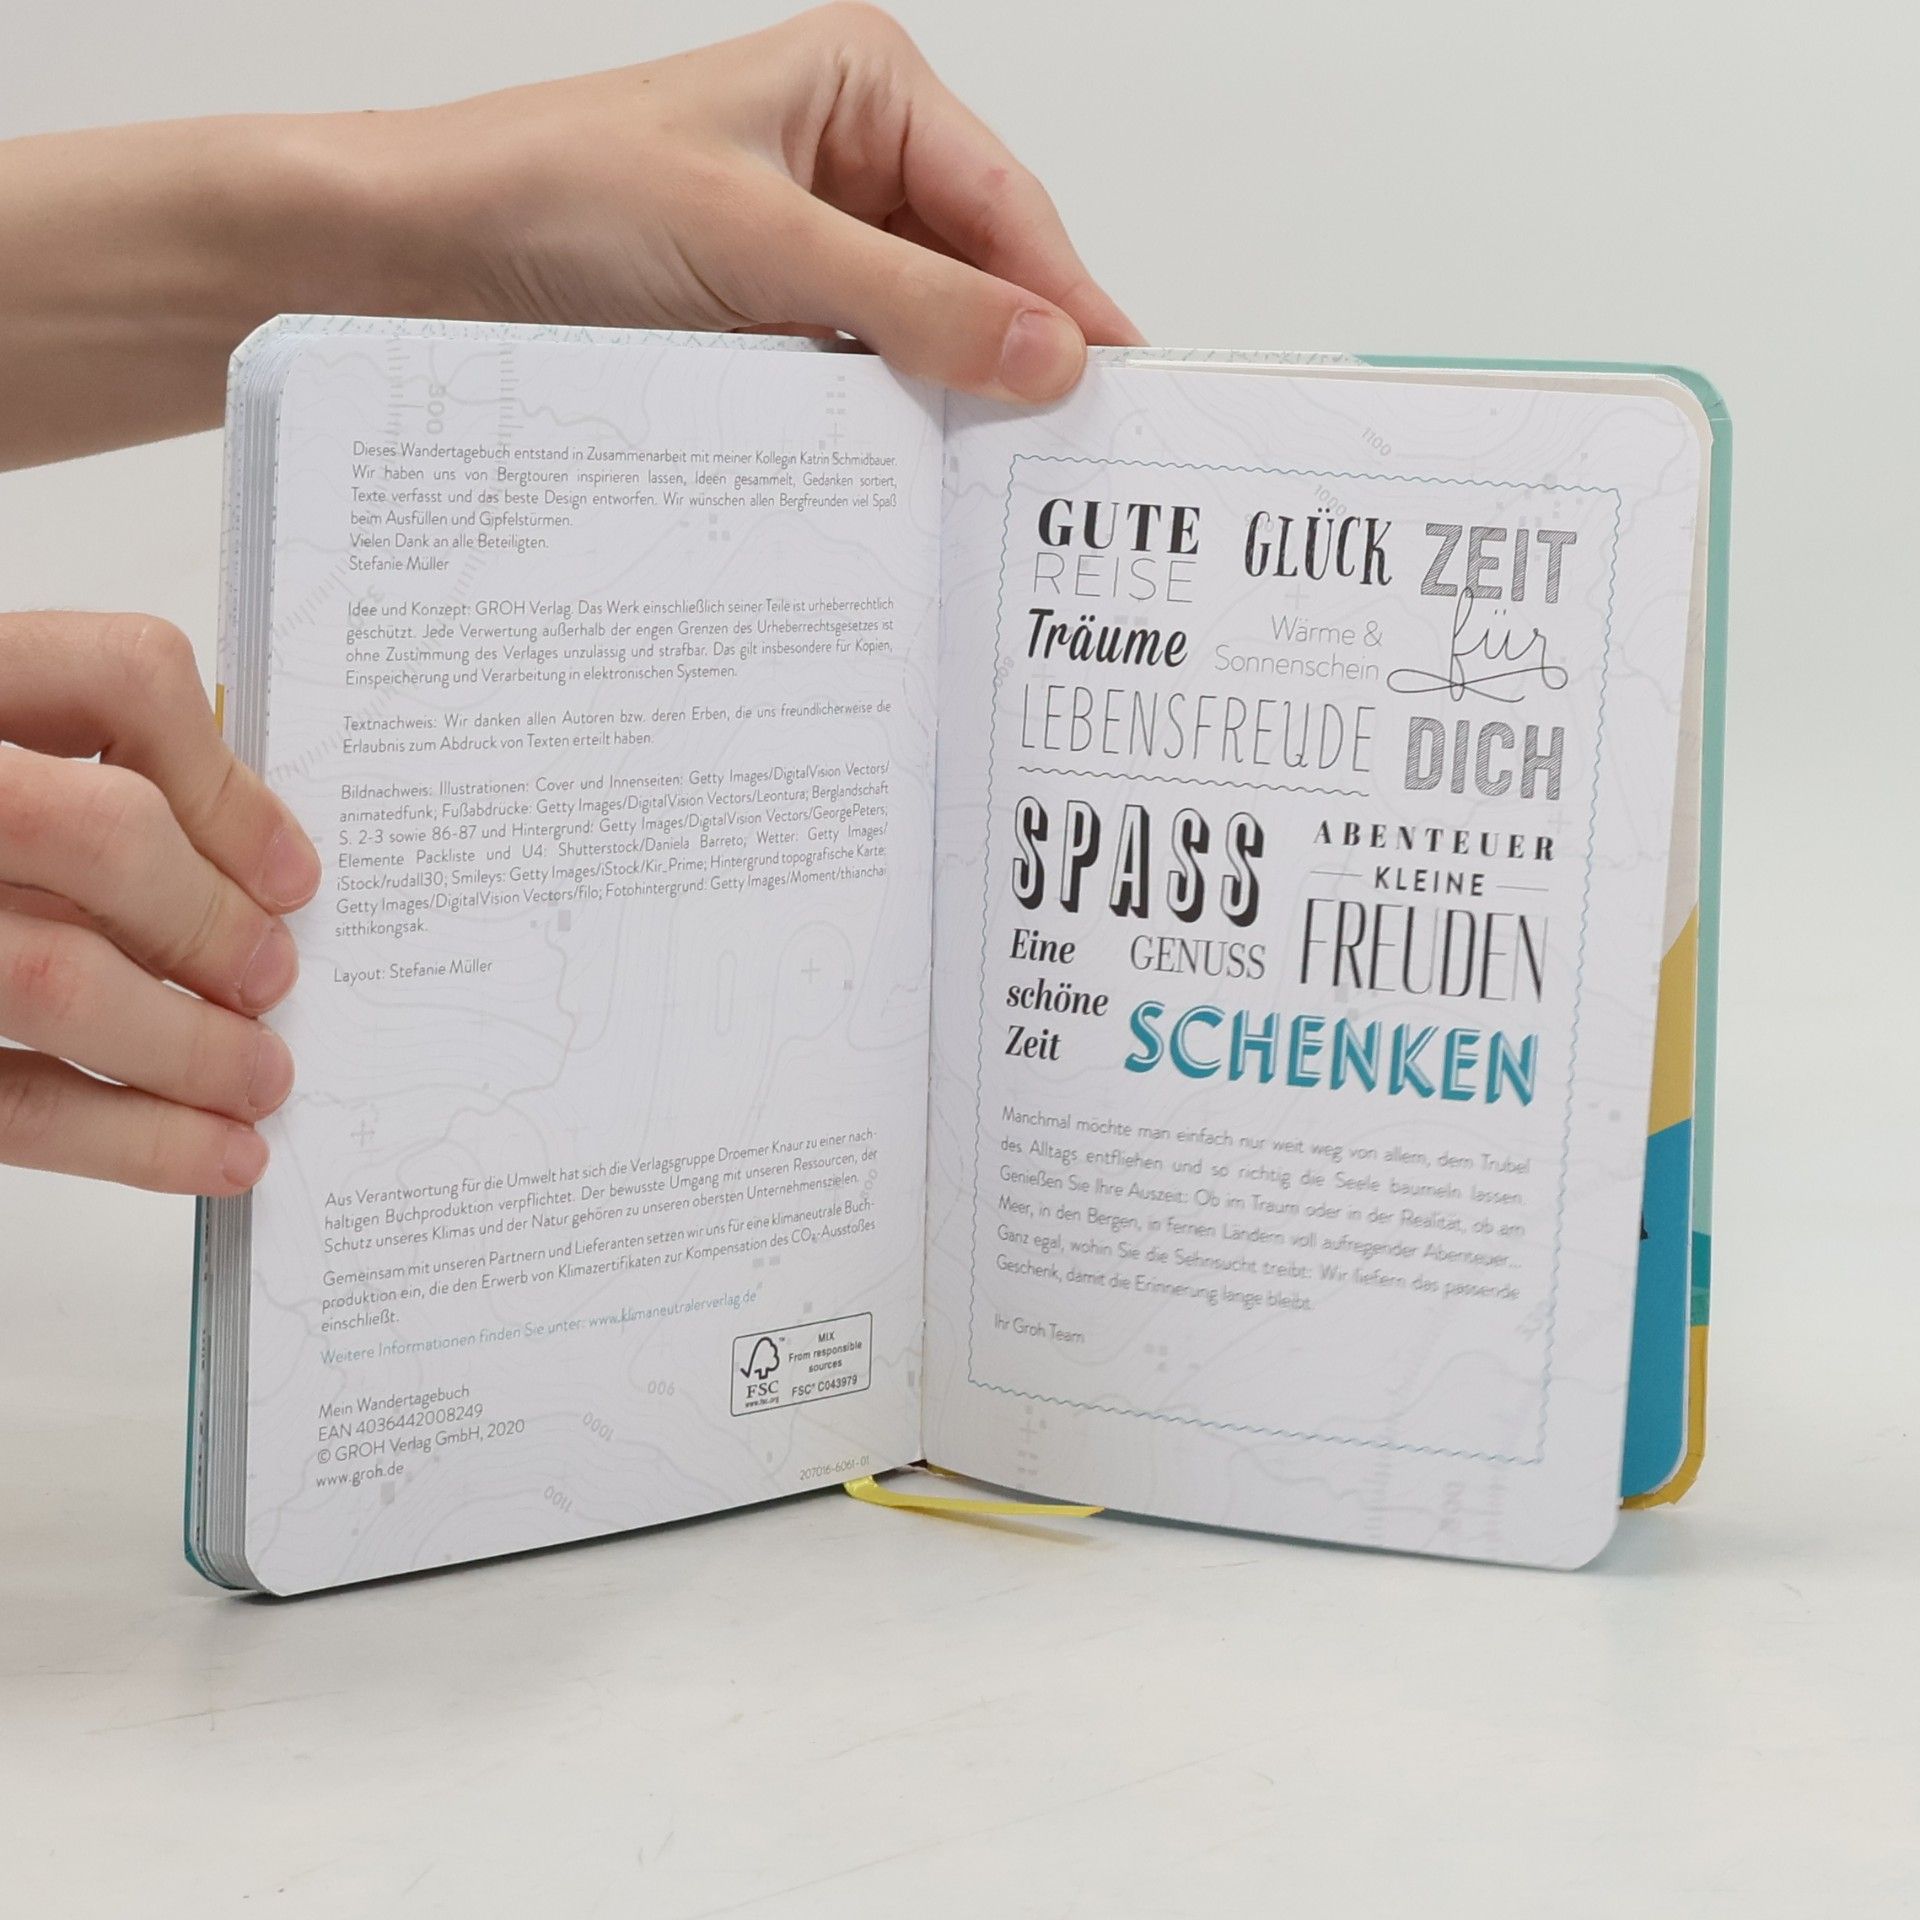 Dieses Wandertagebuch entstand in Zusammenarbeit mit meiner Kollegin Katrin Schmidbauer.
Wir haben uns von Bergtouren inspirieren lassen, Ideen gesammelt, Gedanken sortiert,
Texte verfasst und das beste Design entworfen. Wir wünschen allen Bergfreunden viel Spaß
beim Ausfüllen und Gipfelstürmen.
Vielen Dank an alle Beteiligten.
Stefanie Müller
Idee und Konzept: GROH Verlag. Das Werk einschließlich seiner Teile ist urheberrechtlich
geschützt. Jede Verwertung außerhalb der engen Grenzen des Urheberrechtsgesetzes ist
ohne Zustimmung des Verlages unzulässig und strafbar. Das gilt insbesondere für Kopien,
Einspeicherung und Verarbeitung in elektronischen Systemen.
Textnachweis: Wir danken allen Autoren bzw. deren Erben, die uns freundlicherweise die
Erlaubnis zum Abdruck von Texten erteilt haben.
Bildnachweis: Illustrationen: Cover und Innenseiten: Getty Images/DigitalVision Vectors/
animatedfunk; Fußabdrücke: Getty Images/DigitalVision Vectors/Leontura; Berglandschaft
S. 2-3 sowie 86-87 und Hintergrund: Getty Images/DigitalVision Vectors/GeorgePeters;
Elemente Packliste und U4: Shutterstock/Daniela Barreto; Wetter: Getty Images/
iStock/rudall30; Smileys: Getty Images/iStock/Kir_Prime; Hintergrund topografische Karte:
Getty Images/DigitalVision Vectors/filo; Fotohintergrund: Getty Images/Moment/thianchai
sitthikongsak.
Layout: Stefanie Müller
Aus Verantwortung für die Umwelt hat sich die Verlagsgruppe Droemer Knaur zu einer nach-
haltigen Buchproduktion verpflichtet. Der bewusste Umgang mit unseren Ressourcen, der
Schutz unseres Klimas und der Natur gehören zu unseren obersten Unternehmenszielen.
Gemeinsam mit unseren Partnern und Lieferanten setzen wir uns für eine klimaneutrale Buch-
produktion ein, die den Erwerb von Klimazertifikaten zur Kompensation des CO₂-Ausstoßes
einschließt.
Weitere Informationen finden Sie unter: www.klimaneutralerverlag.de
Mein Wandertagebuch
EAN 4036442008249
© GROH Verlag GmbH, 2020
www.groh.de
FSC
www.fsc.org
MIX
From responsible
sources
FSC® C043979
207016-6061-01
300
900
1000
1100
1100
1000
GUTE
REISE
GLÜCK
ZEIT
für
DICH
Träume
Wärme &
Sonnenschein
LEBENSFREUDE
SPASS
ABENTEUER
KLEINE
FREUDEN
Eine
schöne
Zeit
GENUSS
SCHENKEN
Manchmal möchte man einfach nur weit weg von allem, dem Trubel
des Alltags entfliehen und so richtig die Seele baumeln lassen.
Genießen Sie Ihre Auszeit: Ob im Traum oder in der Realität, ob am
Meer, in den Bergen, in fernen Ländern voll aufregender Abenteuer...
Ganz egal, wohin Sie die Sehnsucht treibt: Wir liefern das passende
Geschenk, damit die Erinnerung lange bleibt.
Ihr Groh Team